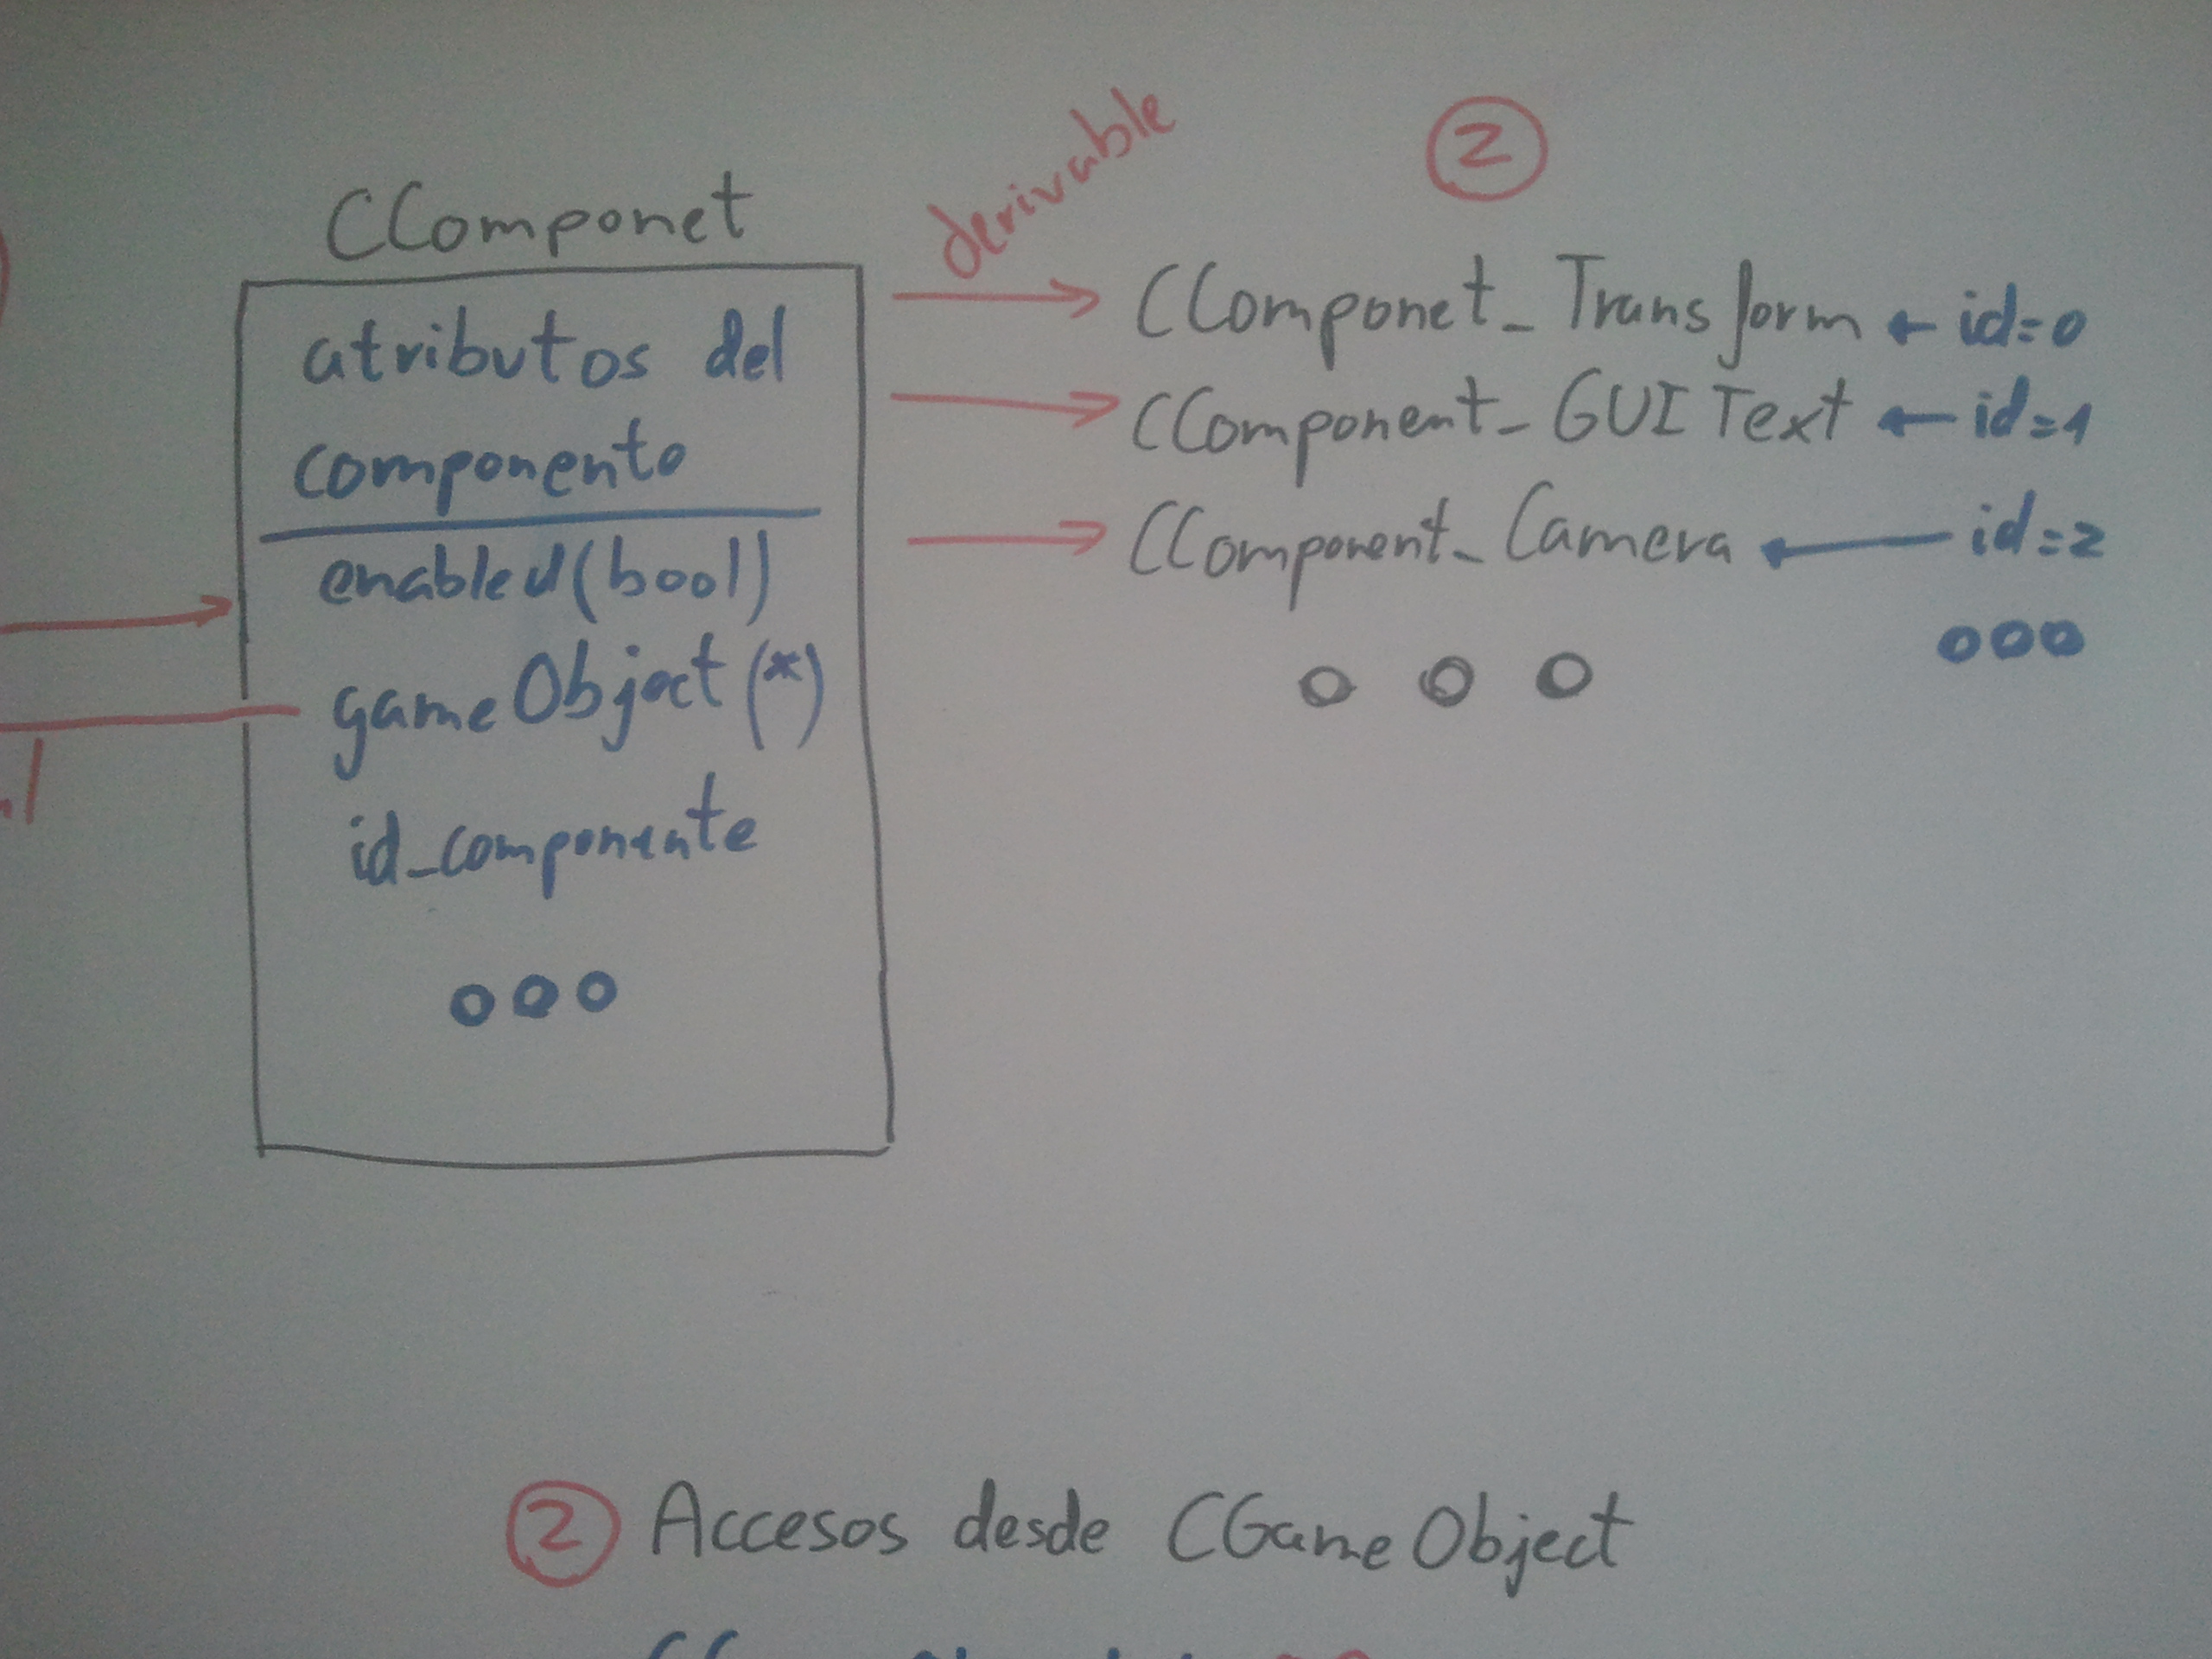 CComponet
atributos del
componento
enabled(bool)
gameObject(*)
id_componente
ooo
derivable
2
CComponet_Transform ← id=0
CComponent_GUIText ← id=1
CComponent_Camera ← id=2
ooo ooo
2 Accesos desde CGameObject